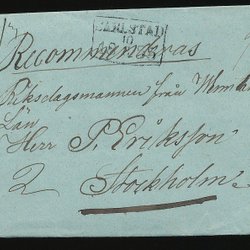 CARLSTAD
10
Recommenderas
Riksdagsmannen från Werml
Län
Herr P. Eriksson
2 Stockholm